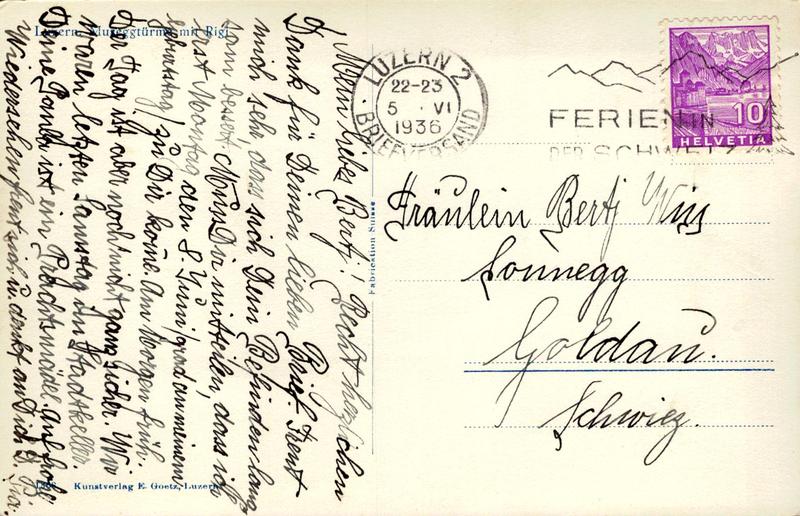 Luzern. Museggtürme mit Rigi
Mein liebes Bertj! Recht herzlichen
Dank für Deinen lieben Brief. Freut
mich sehr, dass sich Dein Befinden lang-
sam bessert. Muss Dir mitteilen, dass ich
erst Montag den 8 Juni, grad an meinem
Geburtstag, zu Dir kome. Am Morgen früh.
Der Tag ist aber noch nicht ganz sicher. Wir
waren letzten Samstag im Stadtkeller.
Deine Paula ist ein Prachtsmädel. Auf frohes
Wiedersehen freut sich u. denkt an Dich
1368 Kunstverlag E. Goetz, Luzern
Fabrication Suisse
LUZERN 2
22-23
5. VI
1936
BRIEFVERSAND
FERIEN IN
DER SCHWEIZ
10
HELVETIA
Fräulein Bertj
Sonnegg
Goldau.
Schwiez.